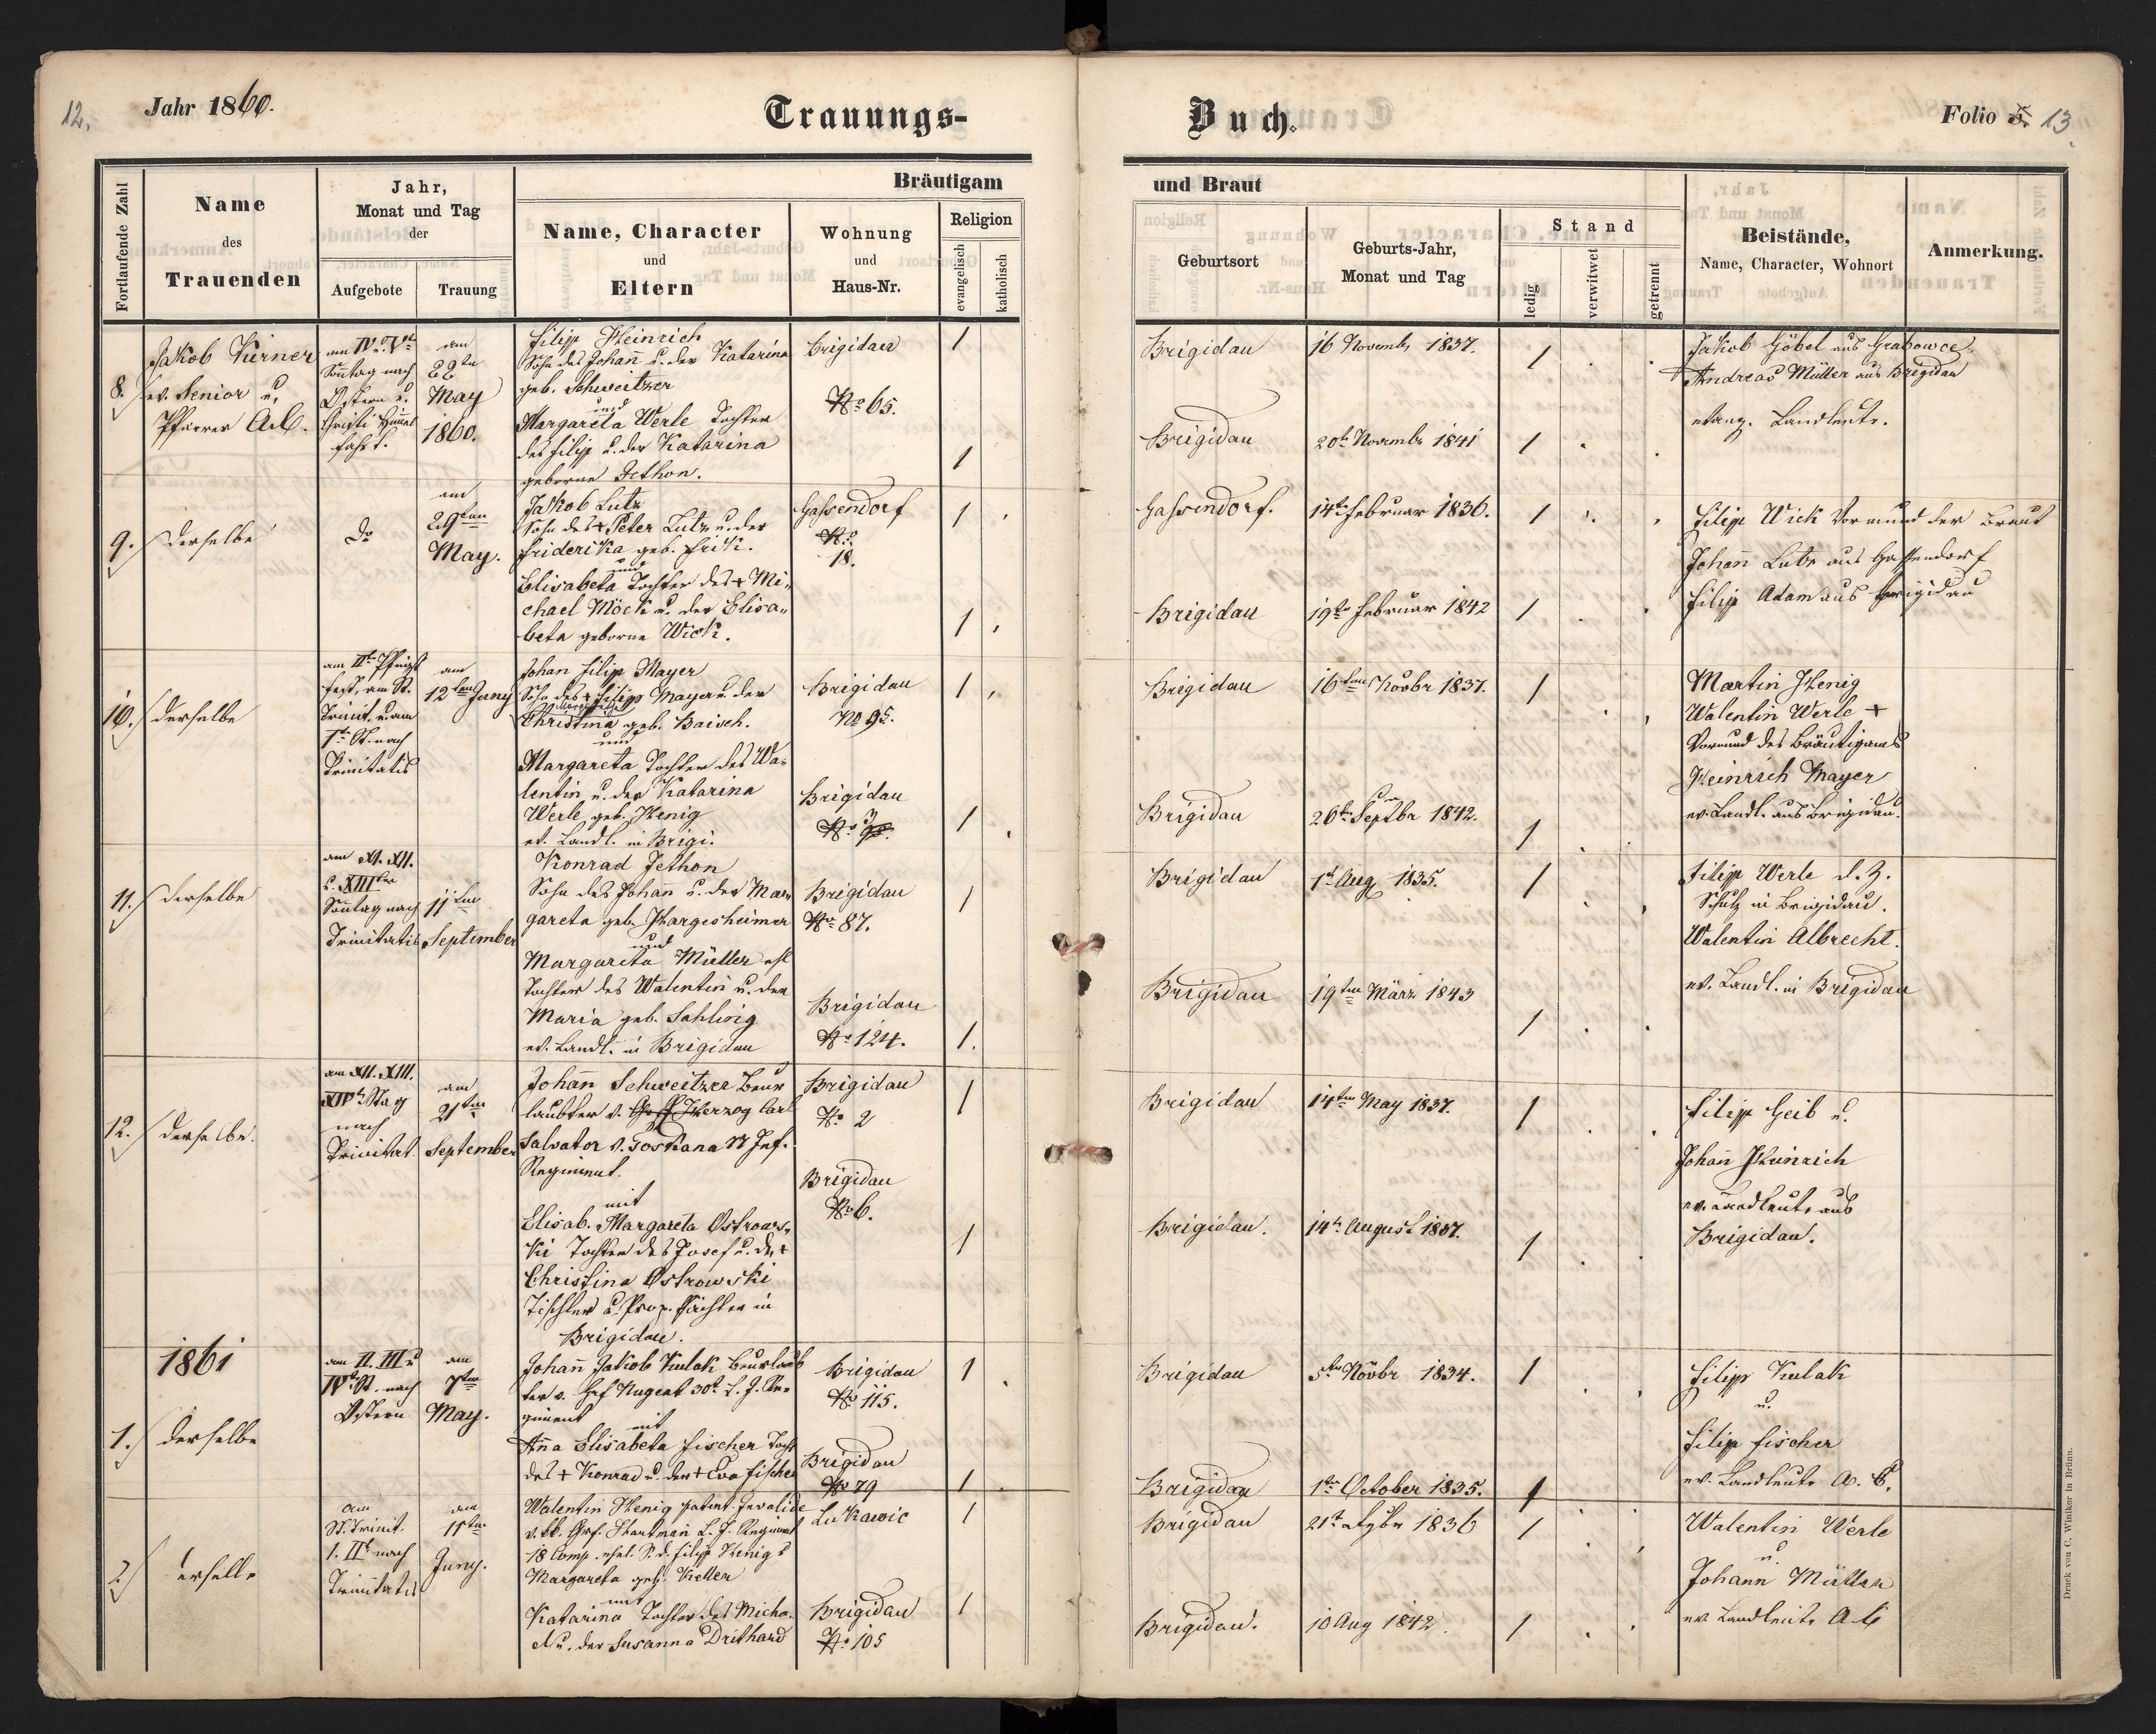 12.
Jahr 1860.
Trauungs-
Buch.
Folio 5. 13
Fortlaufende Zahl
Name
des
Trauenden
Jahr,
Monat und Tag
der
Aufgebote
Trauung
Bräutigam
und Braut
Name, Character
und
Eltern
Wohnung
und
Haus-Nr.
Religion
evangelisch
katholisch
Geburtsort
Geburts-Jahr,
Monat und Tag
Stand
ledig
verwitwet
getrennt
Beistände,
Name, Character, Wohnort
Anmerkung.
8.
Jakob Kürner
ev. Senior u.
Pfarrer
am IV u. Vte
Sonntag nach
Ostern u.
Christi Himmel
fahrt.
am
22te
May
1860.
Filip Heinrich
Sohn des Johann u. der Katarina
geb. Schweitzer
und
Margareta Werle Tochter
des Filip u. der Katarina
geborne Jethon.
Brigidau
No 65.
1
1
Brigidau
16 Novemb. 1837.
1
Brigidau
20te Novembr 1841
1
Jakob Göbel aus Grabowce
Andreas Müller aus Brigidau
evang. Landleute.
9.
derselbe
do
am
29ten
May.
Jakob Lutz
Sohn des + Peter Lutz u. der
Friderika geb. Frik.
und
Elisabeta Tochter des + Mi-
chael Möck u. der Elisa-
beta geborne Wick.
Gassendorf
No
18.
1
1
Gassendorf.
14te Februar 1836.
1
Brigidau
19te Februar 1842
1
Filip Wick Vormund der Braut
Johann Lutz aus Gassendorf
Filip Adam aus Brigidau
10.
derselbe
am IIte Pfingst
fest, am St.
Trinit. u. am
1te St. nach
Trinitatis
am
12ten Juny
Johan Filip Mayer
Sohn des + Filipp Mayer u. der
Christina geb. Baisch.
und
Margareta Tochter des Wa-
lentin u. der Katarina
Werle geb. Henig
ev. Landl. in Brigi.
Brigidau
No 95.
Brigidau
No
1
1
Brigidau
16ten Novbr 1837.
1
Brigidau
26te Septbr 1842.
1
Martin Henig
Walentin Werle +
Vormund des Bräutigams
Heinrich Mayer
ev. Landl. aus Brigidau.
11.
derselbe
am XI. XII.
u. XIIIten
Sonntag nach
Trinitatis
11ten
September
Konrad Jethon
Sohn des Johann u. der Mar-
gareta geb. Hargesheimer
und
Margareta Müller
Tochter des Walentin u. der
Maria geb. Sahling
ev. Landl. in Brigidau
Brigidau
No 87.
Brigidau
No 124.
1
1.
Brigidau
1te Aug. 1835.
1
Brigidau
19ten März 1843
1
Filipp Werle d. Z.
Schulz in Brigidau.
Walentin Albrecht.
ev. Landl. in Brigidau
12.
derselbe.
am XII. XIII.
XIVte Stag
nach
Trinitat.
am
21ten
September
Johann Schweitzer Beur
laubter v. Herzog Carl
Salvator v. Toskana 77 Inf.
Regiment.
mit
Elisab. Margareta Ostrows-
ki Tochter des Josef u. der +
Christina Ostrowski
Tischler u. Prop. Pächter in
Brigidau.
Brigidau
No 2
Brigidau
No 6.
1
1
Brigidau
14ten May 1837.
1
Brigidau.
14te August 1837.
1
Filipp Geib u.
Johann Heinrich
ev. Landleute aus
Brigidau.
1861
1.
derselbe
am II. III u
IVte St. nach
Ostern
am
7ten
May.
Johann Jakob Kulak Beurlaub
ter v. Grf Nugent 30te L. I. Re-
giment
mit
Anna Elisabeta Fischer Tocht
des + Konrad u. der + Eva Fischer
Brigidau
No 115.
Brigidau
No 79
1
1
Brigidau
5te Novbr 1834.
1
Brigidau
1te October 1835.
1
Filipp Kulak
u.
Filip Fischer
ev. Landleute A. C.
2.
derselbe
am
St. Trinit.
1. IIte nach
Trinitatis
am
11ten
Juny.
Walentin Henig patent. Invalide
v. kk. Grf. Hartman L. I. Regiment
18 Comp. ehel. S. d. Filipp Henig &
Margareta geb. Keller
mit
Katarina Tochter des Micha-
el u. der Susanna Drithard
Lukawic
Brigidau
No 105
1
1
Brigidau
21te 1836
1
Brigidau.
10 Aug 1842.
1
Walentin Werle
u.
Johann Müller
ev. Landleute A C
Druck von C. Winiker in Brünn.